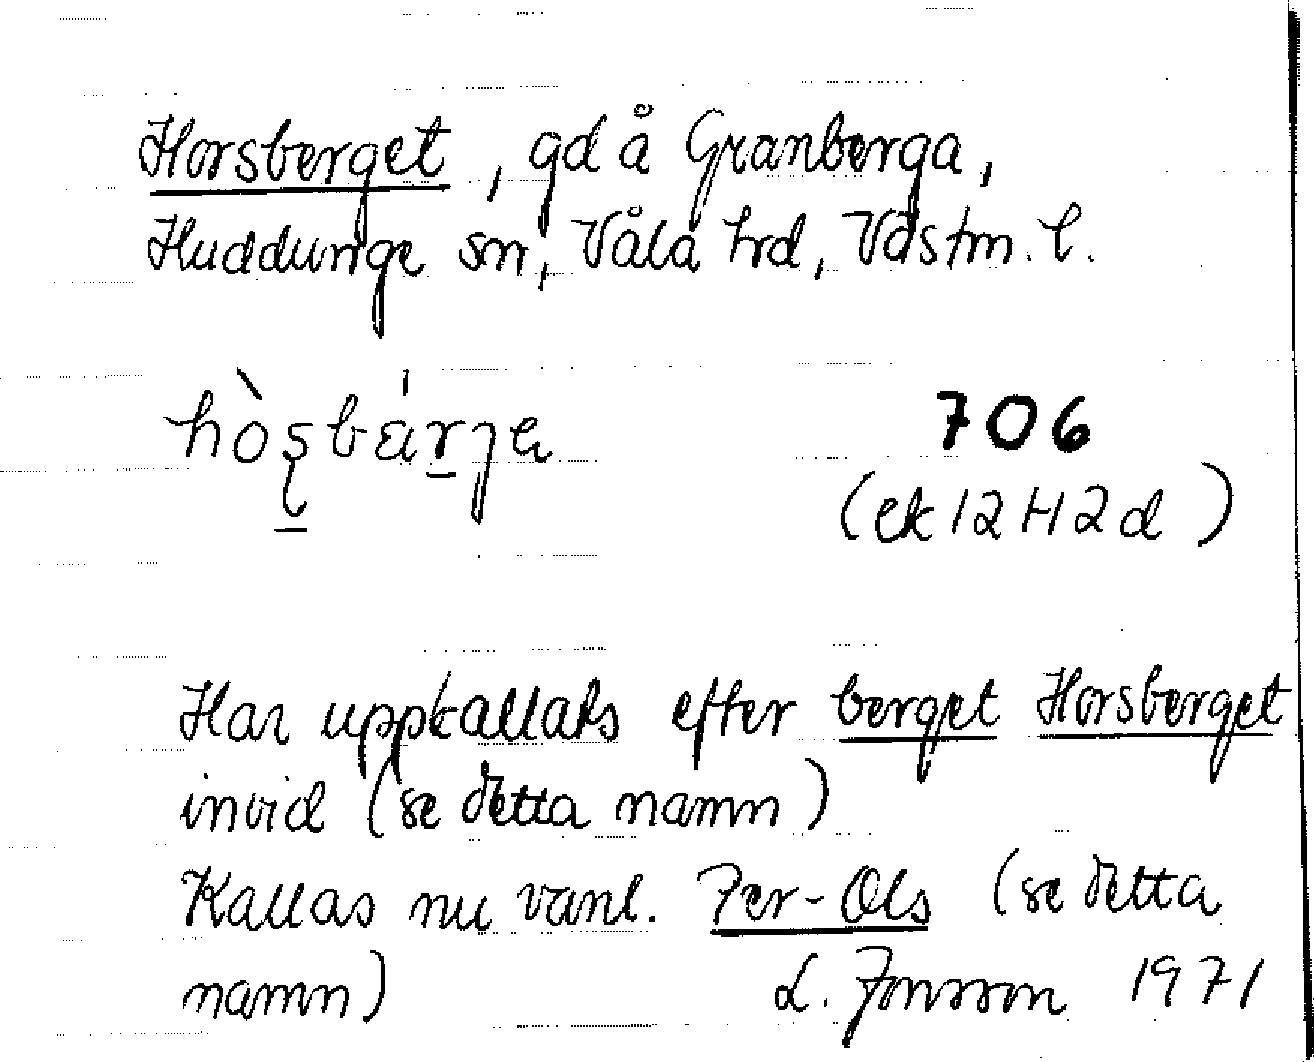 Horsberget, gd å Granberga,
Huddunge sn, Våla hrd, Västm. l.
706
(ek 12 H 2 d)
Har uppkallats efter berget Horsberget
invid (se detta namn)
Kallas nu vanl. Per-Ols (se detta
namn) L. Jonsson 1971